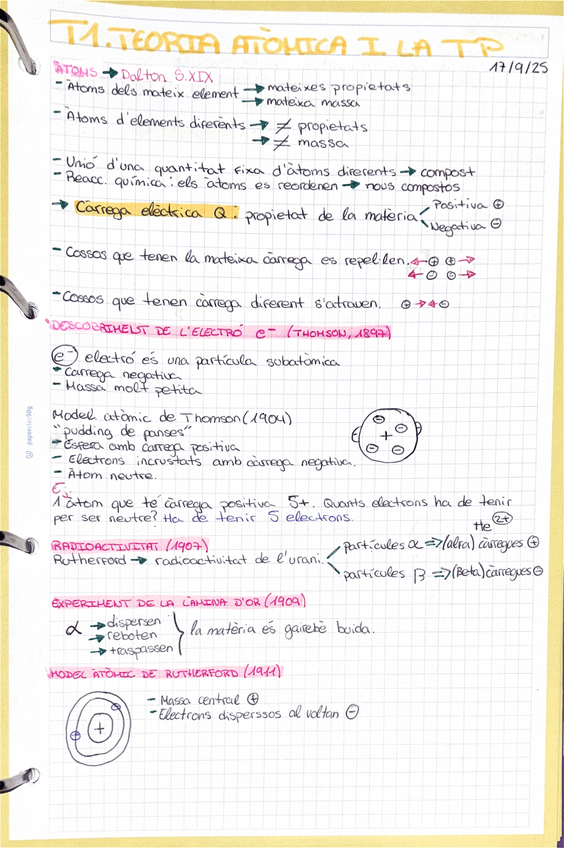 T1. TEORIA ATÒMICA I LA TP
17/9/25
ÀTOMS → Dalton S.XIX
- Àtoms dels mateix element → mateixes propietats
→ mateixa massa
- Àtoms d'elements diferents → ≠ propietats
→ ≠ massa
- Unió d'una quantitat fixa d'àtoms diferents → compost
- Reacc. química: els àtoms es reordenen → nous compostos
→ Càrrega elèctrica Q: propietat de la matèria
Positiva ⊕
Negativa ⊖
- Cossos que tenen la mateixa càrrega es repel·len. ←⊕ ⊕→
←⊖ ⊖→
- Cossos que tenen càrrega diferent s'atrauen. ⊕→←⊖
DESCOBRIMEIST DE L'ELECTRÓ e- (THOMSON, 1897)
e- electró és una partícula subatòmica
- Carrega negativa
- Massa molt petita
Model atòmic de Thomson (1904)
"pudding de panses"
- Esfera amb càrrega positiva
- Electrons incrustats amb càrrega negativa.
- Àtom neutre.
E.
1 àtom que té càrrega positiva 5+. Quants electrons ha de tenir
per ser neutre? Ha de tenir 5 electrons.
He 2+
RADIOACTIVITAT (1907)
partícules α ⇒ (alfa) càrregues ⊕
Rutherford → radioactivitat de l'urani.
partícules β ⇒ (Beta) càrregues ⊖
EXPERIMENT DE LA LÀMINA D'OR (1909)
α → dispersen
→ reboten
→ traspassen
la matèria és gairebé buida.
MODEL ATÒMIC DE RUTHERFORD (1911)
- Massa central ⊕
- Electrons disperssos al voltan ⊖